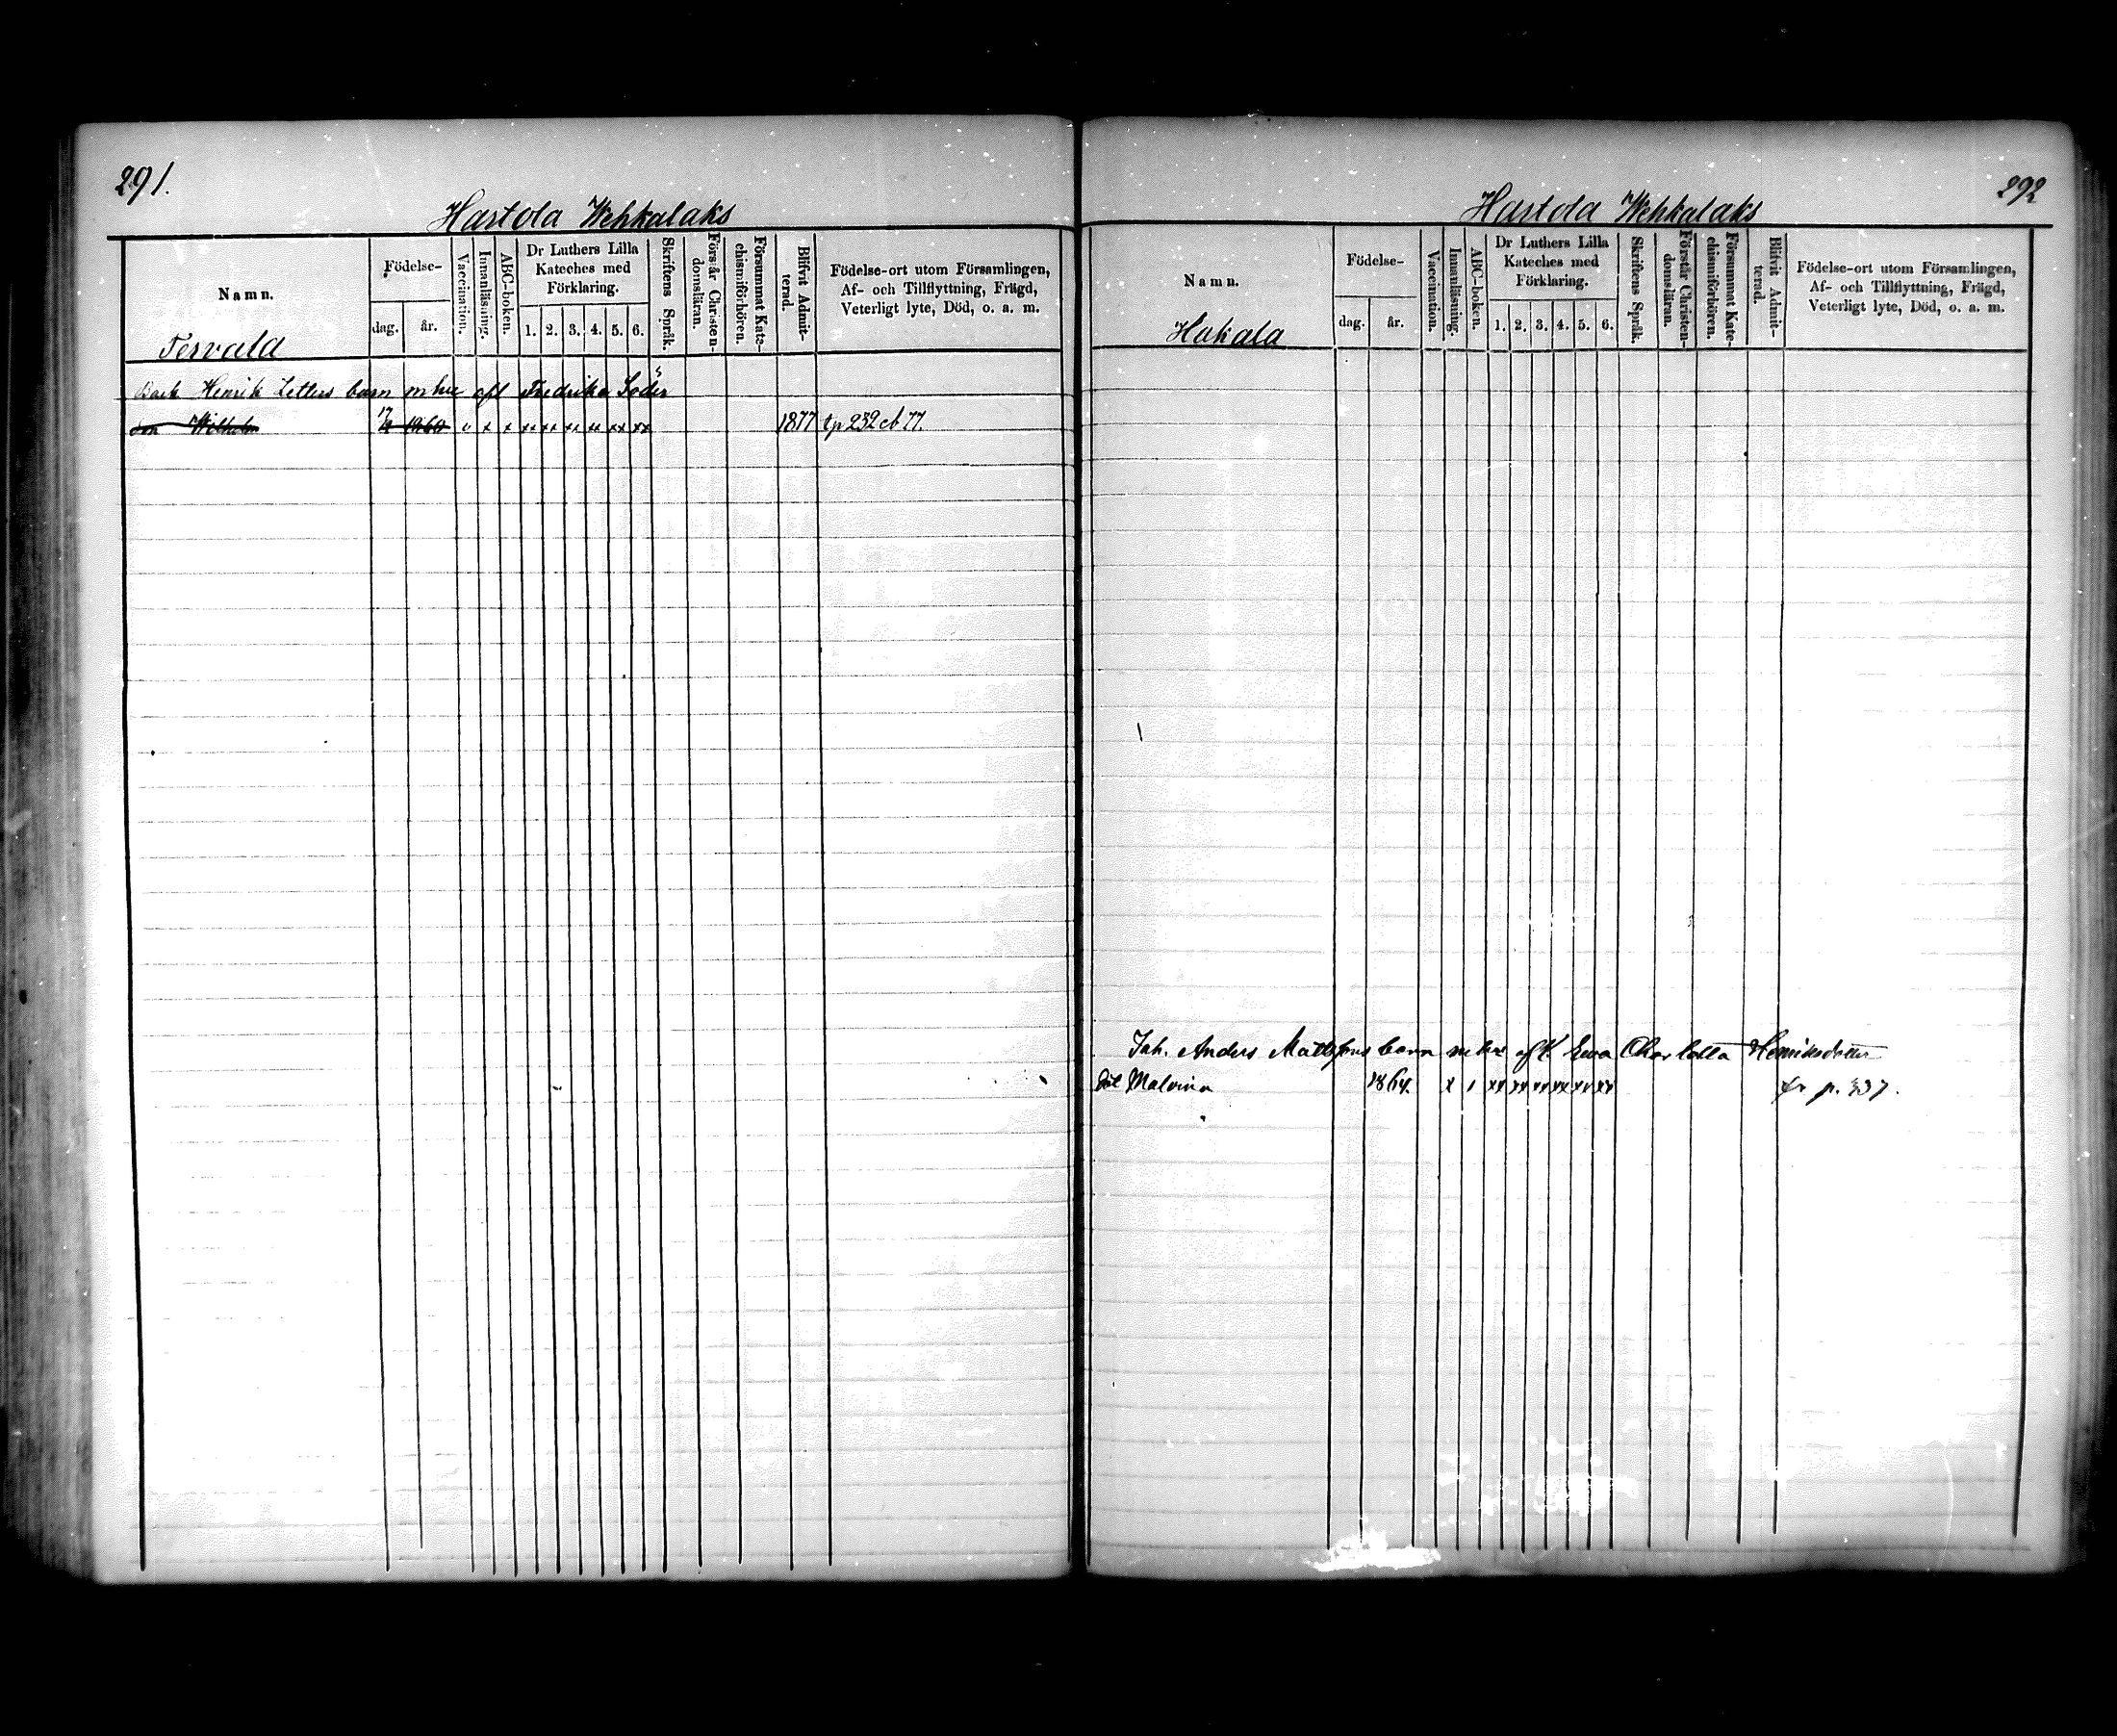 291.
Hastola Wehkalaks
Namn.
Födelse-
dag. år.
Vaccination.
Innanläsning.
ABC-boken.
Dr Luthers Lilla
Kateches med
Förklaring.
1. 2. 3. 4. 5. 6.
Skriftens Språk.
Förstår Christen-
domsläran.
Försummat Kate-
chismiförhören.
Blifvit Admit-
terad.
Födelse-ort utom Församlingen,
Af- och Tillflyttning, Frägd,
Veterligt lyte, Död, o. a. m.
Tervala
Henrik barn m hu afl Fredrika Söder
son Wilhelm 1877 tp 232 cb 77.
292
Hastola Wehkalaks
Namn.
Födelse-
dag. år.
Vaccination.
Innanläsning.
ABC-boken.
Dr Luthers Lilla
Kateches med
Förklaring.
1. 2. 3. 4. 5. 6.
Skriftens Språk.
Förstår Christen-
domsläran.
Försummat Kate-
chismiförhören.
Blifvit Admit-
terad.
Födelse-ort utom Församlingen,
Af- och Tillflyttning, Frägd,
Veterligt lyte, Död, o. a. m.
Hakala
Joh. Anders Mattssons barn m hu Charlotta Henriksdotter
Malvina 1864. x xx xx xx xx xx xx fr p. 337.